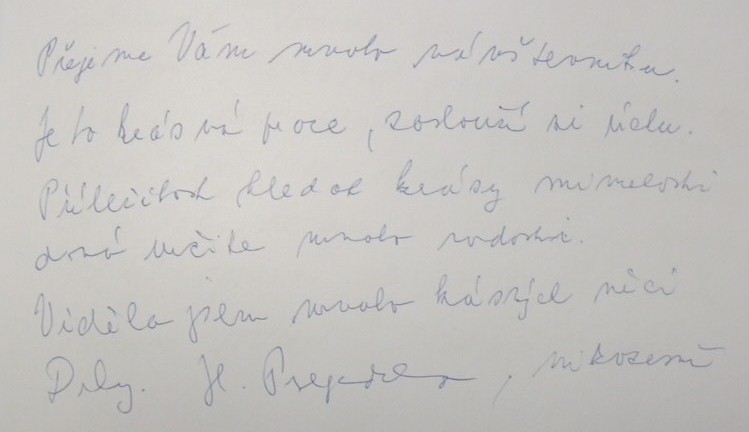 Přejeme Vám mnoho návštevníku.
Je to krásná práce, zaslouží si úctu.
Příležitost hledat krásy minulosti
dává určite mnoho radosti.
Viděla jsem mnoho krásných věcí
Díky. H.